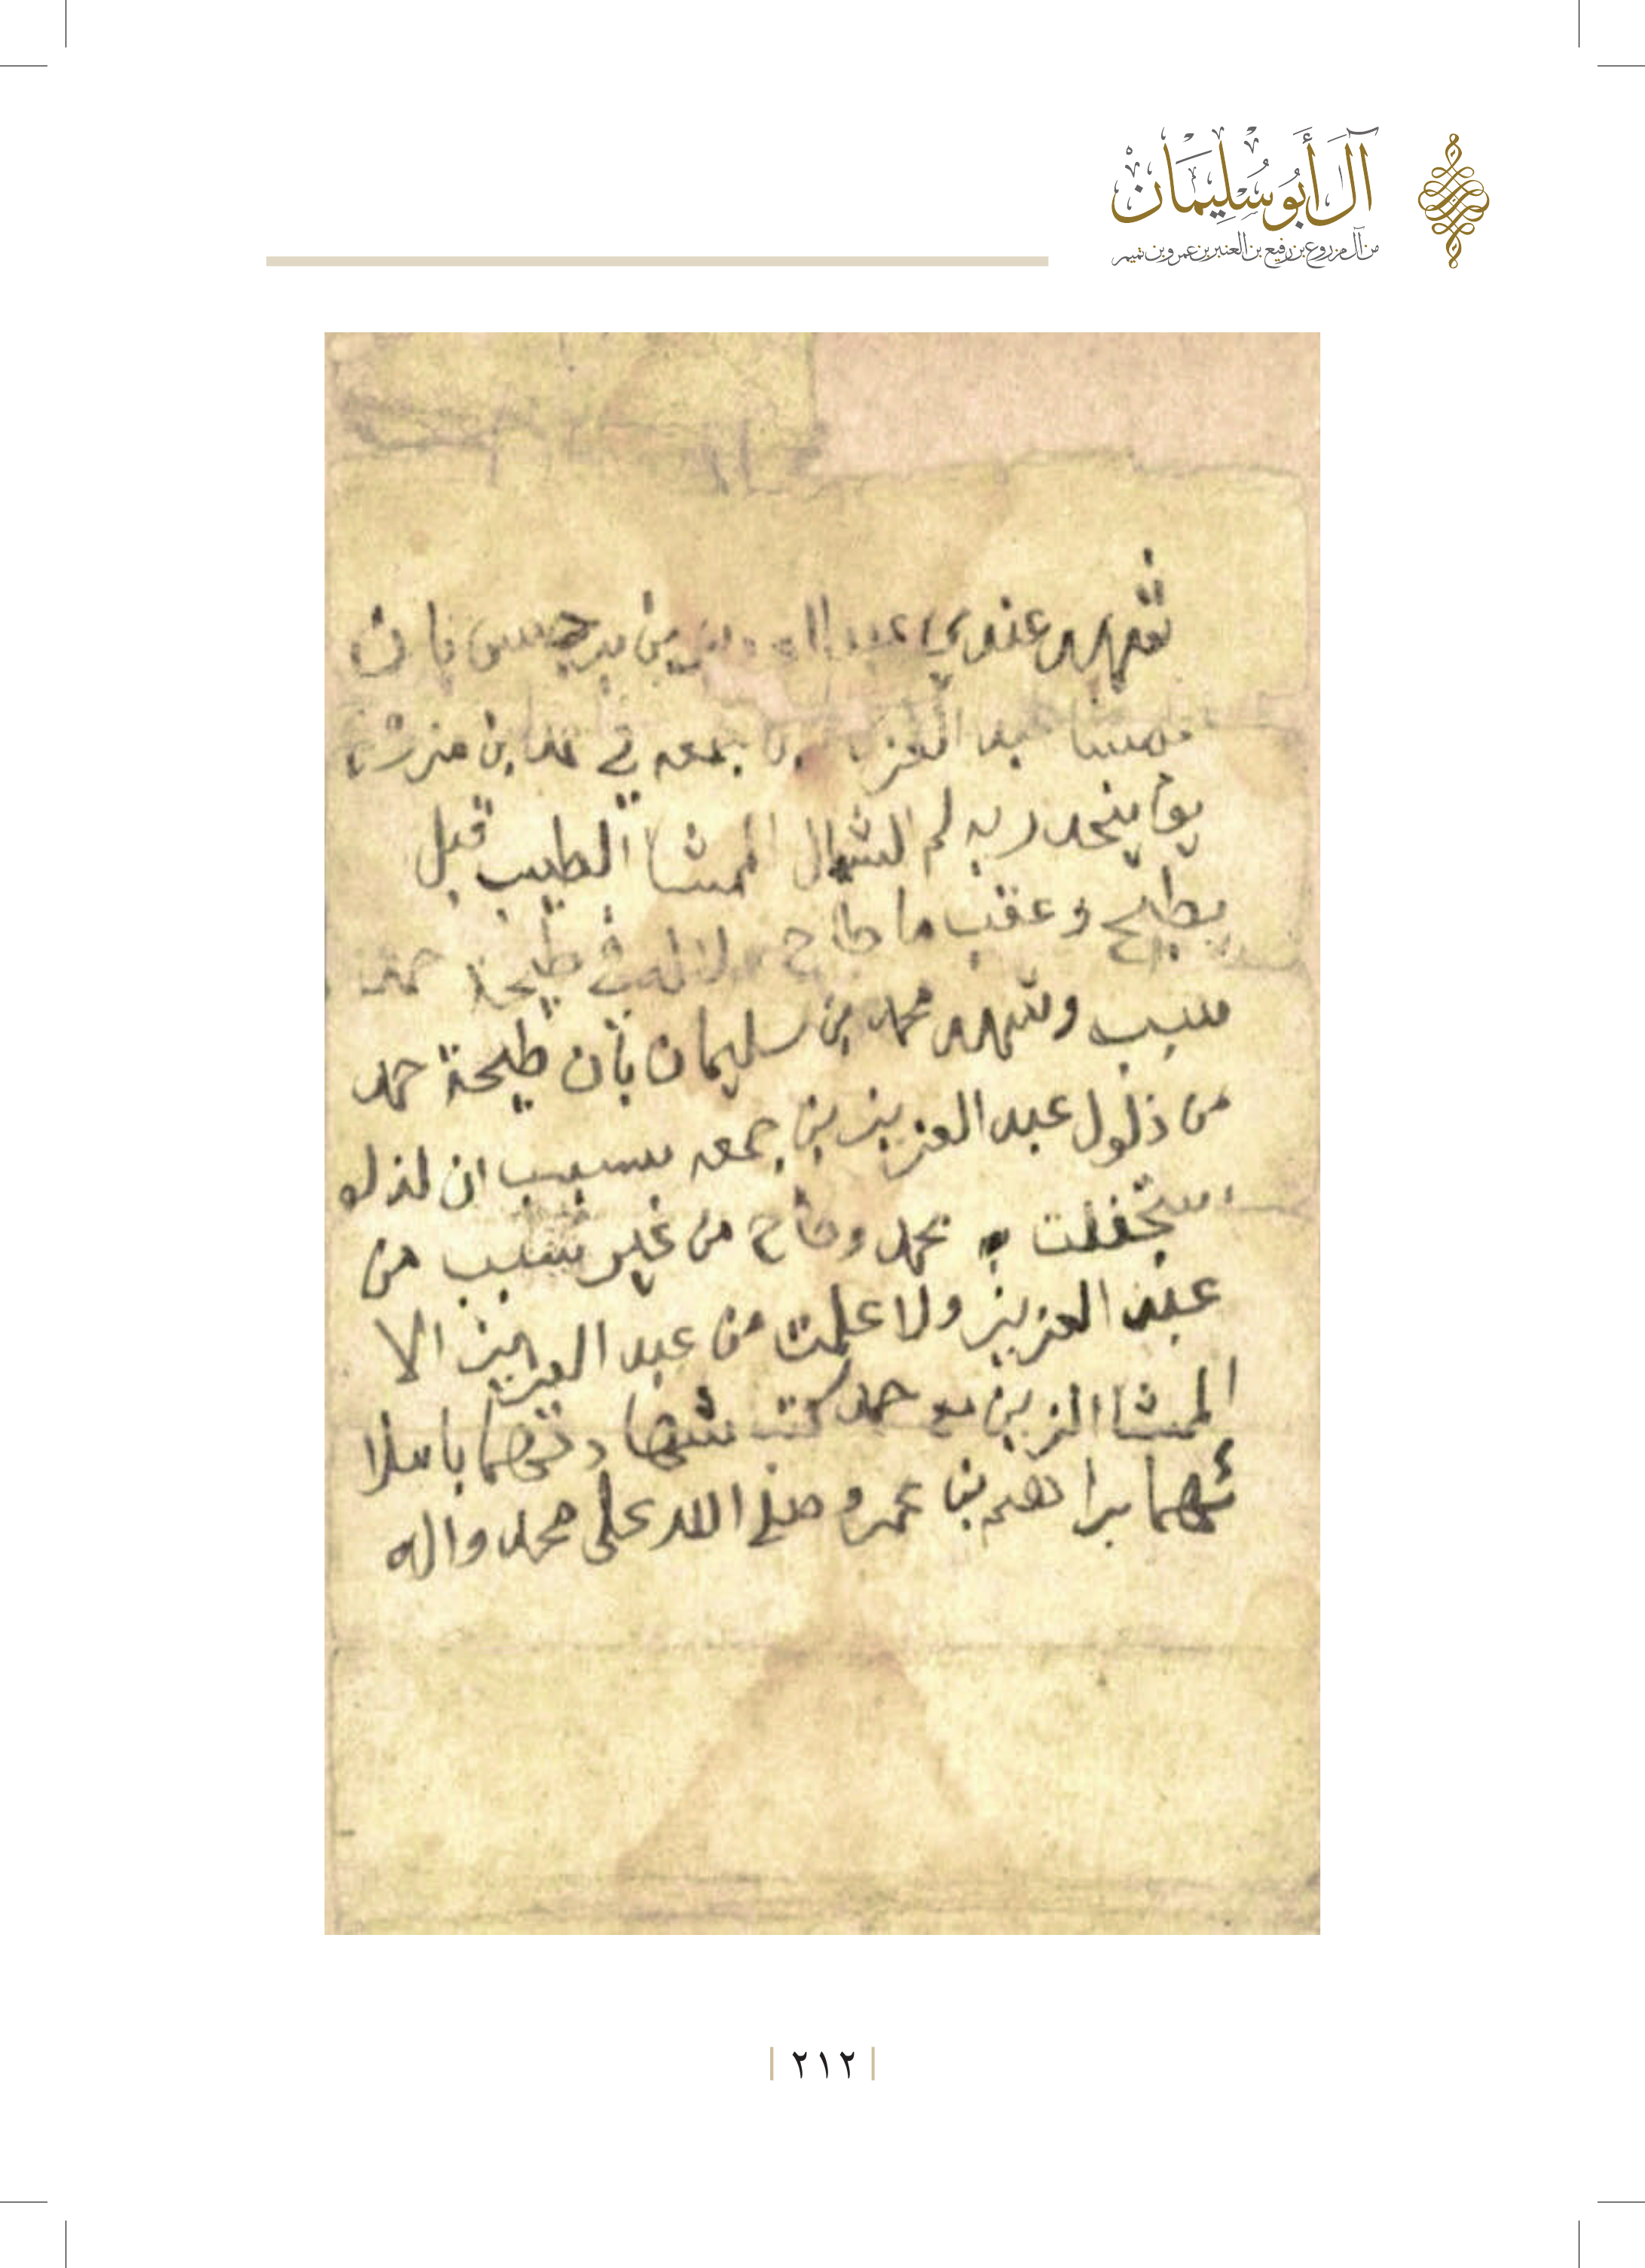 آل أبو سليمان
من آل مزروع بن رفيع بن العنبر بن عمرو بن تميم
شهد عندي عبد العزيز بن برجس بان
ممشا عبد العزيز بن جمعه في حمد بن
يوم ينحدر به لم الشمال الممشا الطيب قبل
يطيح وعقب ما طاح ولا له في طيحة حمد
سبب وشهد محمد بن سليمان بأن طيحة حمد
من ذلول عبد العزيز بن جمعه بسبب ان لذلو
ستجفلت به محمد وطاح من غير سبب من
عبد العزيز ولا علمت من عبد العزيز الا
الممشا الزين مع حمد كتب شهادتهما باملا
ئهما براهيم بن عمرو وصلى الله على محمد واله
٢١٢